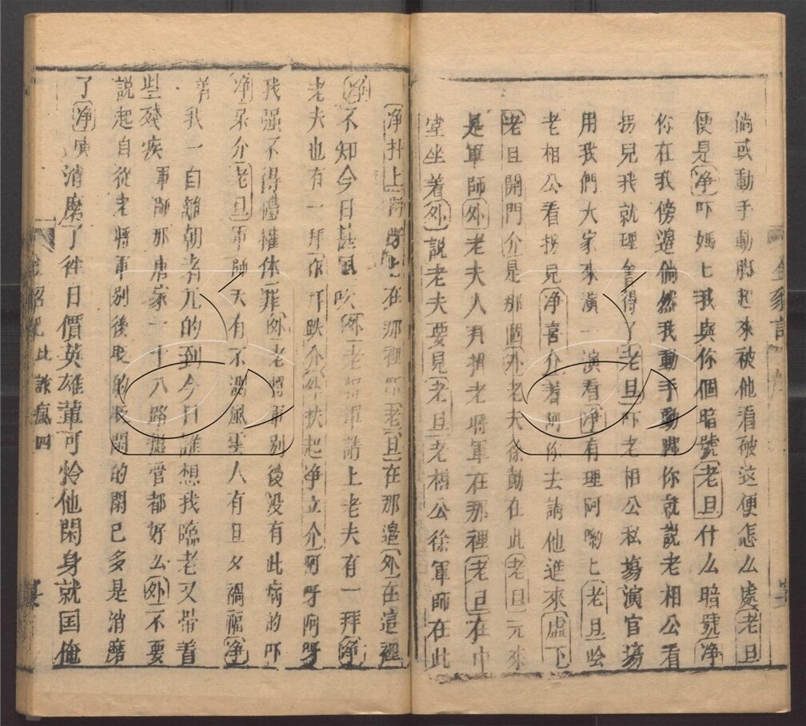 倘或動手動脚起來被他看破這便怎么處老旦
便是淨吓媽匕我與你個暗號老旦什么暗號淨
你在我傍邉倘然我動手動脚你就説老相公看
拐兒我就理會得了老旦吓老相公私塲演官塲
用我們大家來演一演看淨有理阿喲匕老旦唅
老相公看拐兒淨喜介着阿你去請他進來虚下
老旦開門介是那個外老夫徐勣在此老旦元來
是軍師外老夫人有捐老將軍在那裡老旦在中
堂坐着外説老夫要見老旦老相公徐軍師在此
淨扑上 在那裡 老旦在那邉外在這裡
淨不知今日甚風吹外老將軍請上老夫有一拜淨
老夫也有一拜作 跌介外扶起淨立介阿呀阿呀
我强不得禮權休罪外老將軍别後没有此病的吓
淨呆介老旦軍師天有不測風雲人有旦夕禍福淨
着我一自離朝老兀的到今日誰想我臨老又帶着
些殘疾 軍師那唐家一十八路 管都好么外不要
説起自從老將軍别後 的 閑的閑已多是消磨
了淨 消磨了徃日價英雄董可怜他閑身就国俺
此 詐瘋 四